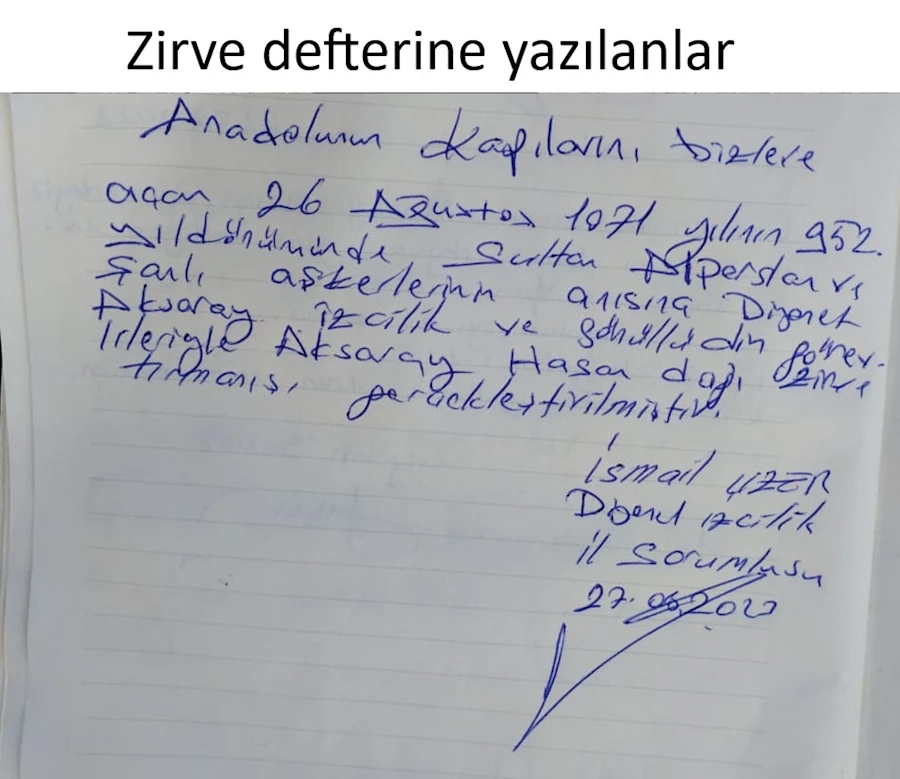 Zirve defterine yazılanlar
Anadolunun Kapılarını bizlere
açan 26 Ağustos 1071 yılının 952.
yıldönümünde Sultan Alperslan ve
Şanlı aşkerlerinin anısına Diyanet
Aksaray izcilik ve gönüllü din görev-
lileriyle Aksaray Hasan dağı zirve
tırmanışı gerçekleştirilmiştir.
İsmail UZER
Diyanet izcilik
il Sorumlusu
27. 2023